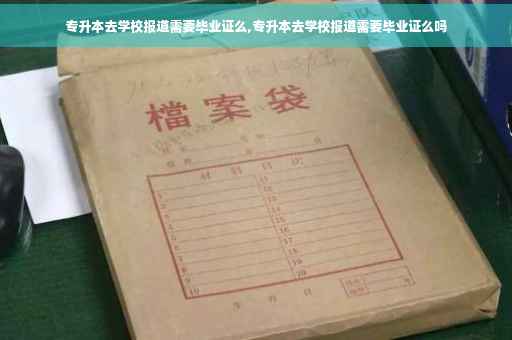 专升本去学校报道需要毕业证么,专升本去学校报道需要毕业证么吗
檔案袋
材料目次
1 11
2 12
3 13
4 14
5 15
6 16
7 17
8 18
9 19
10 20
年 月 日